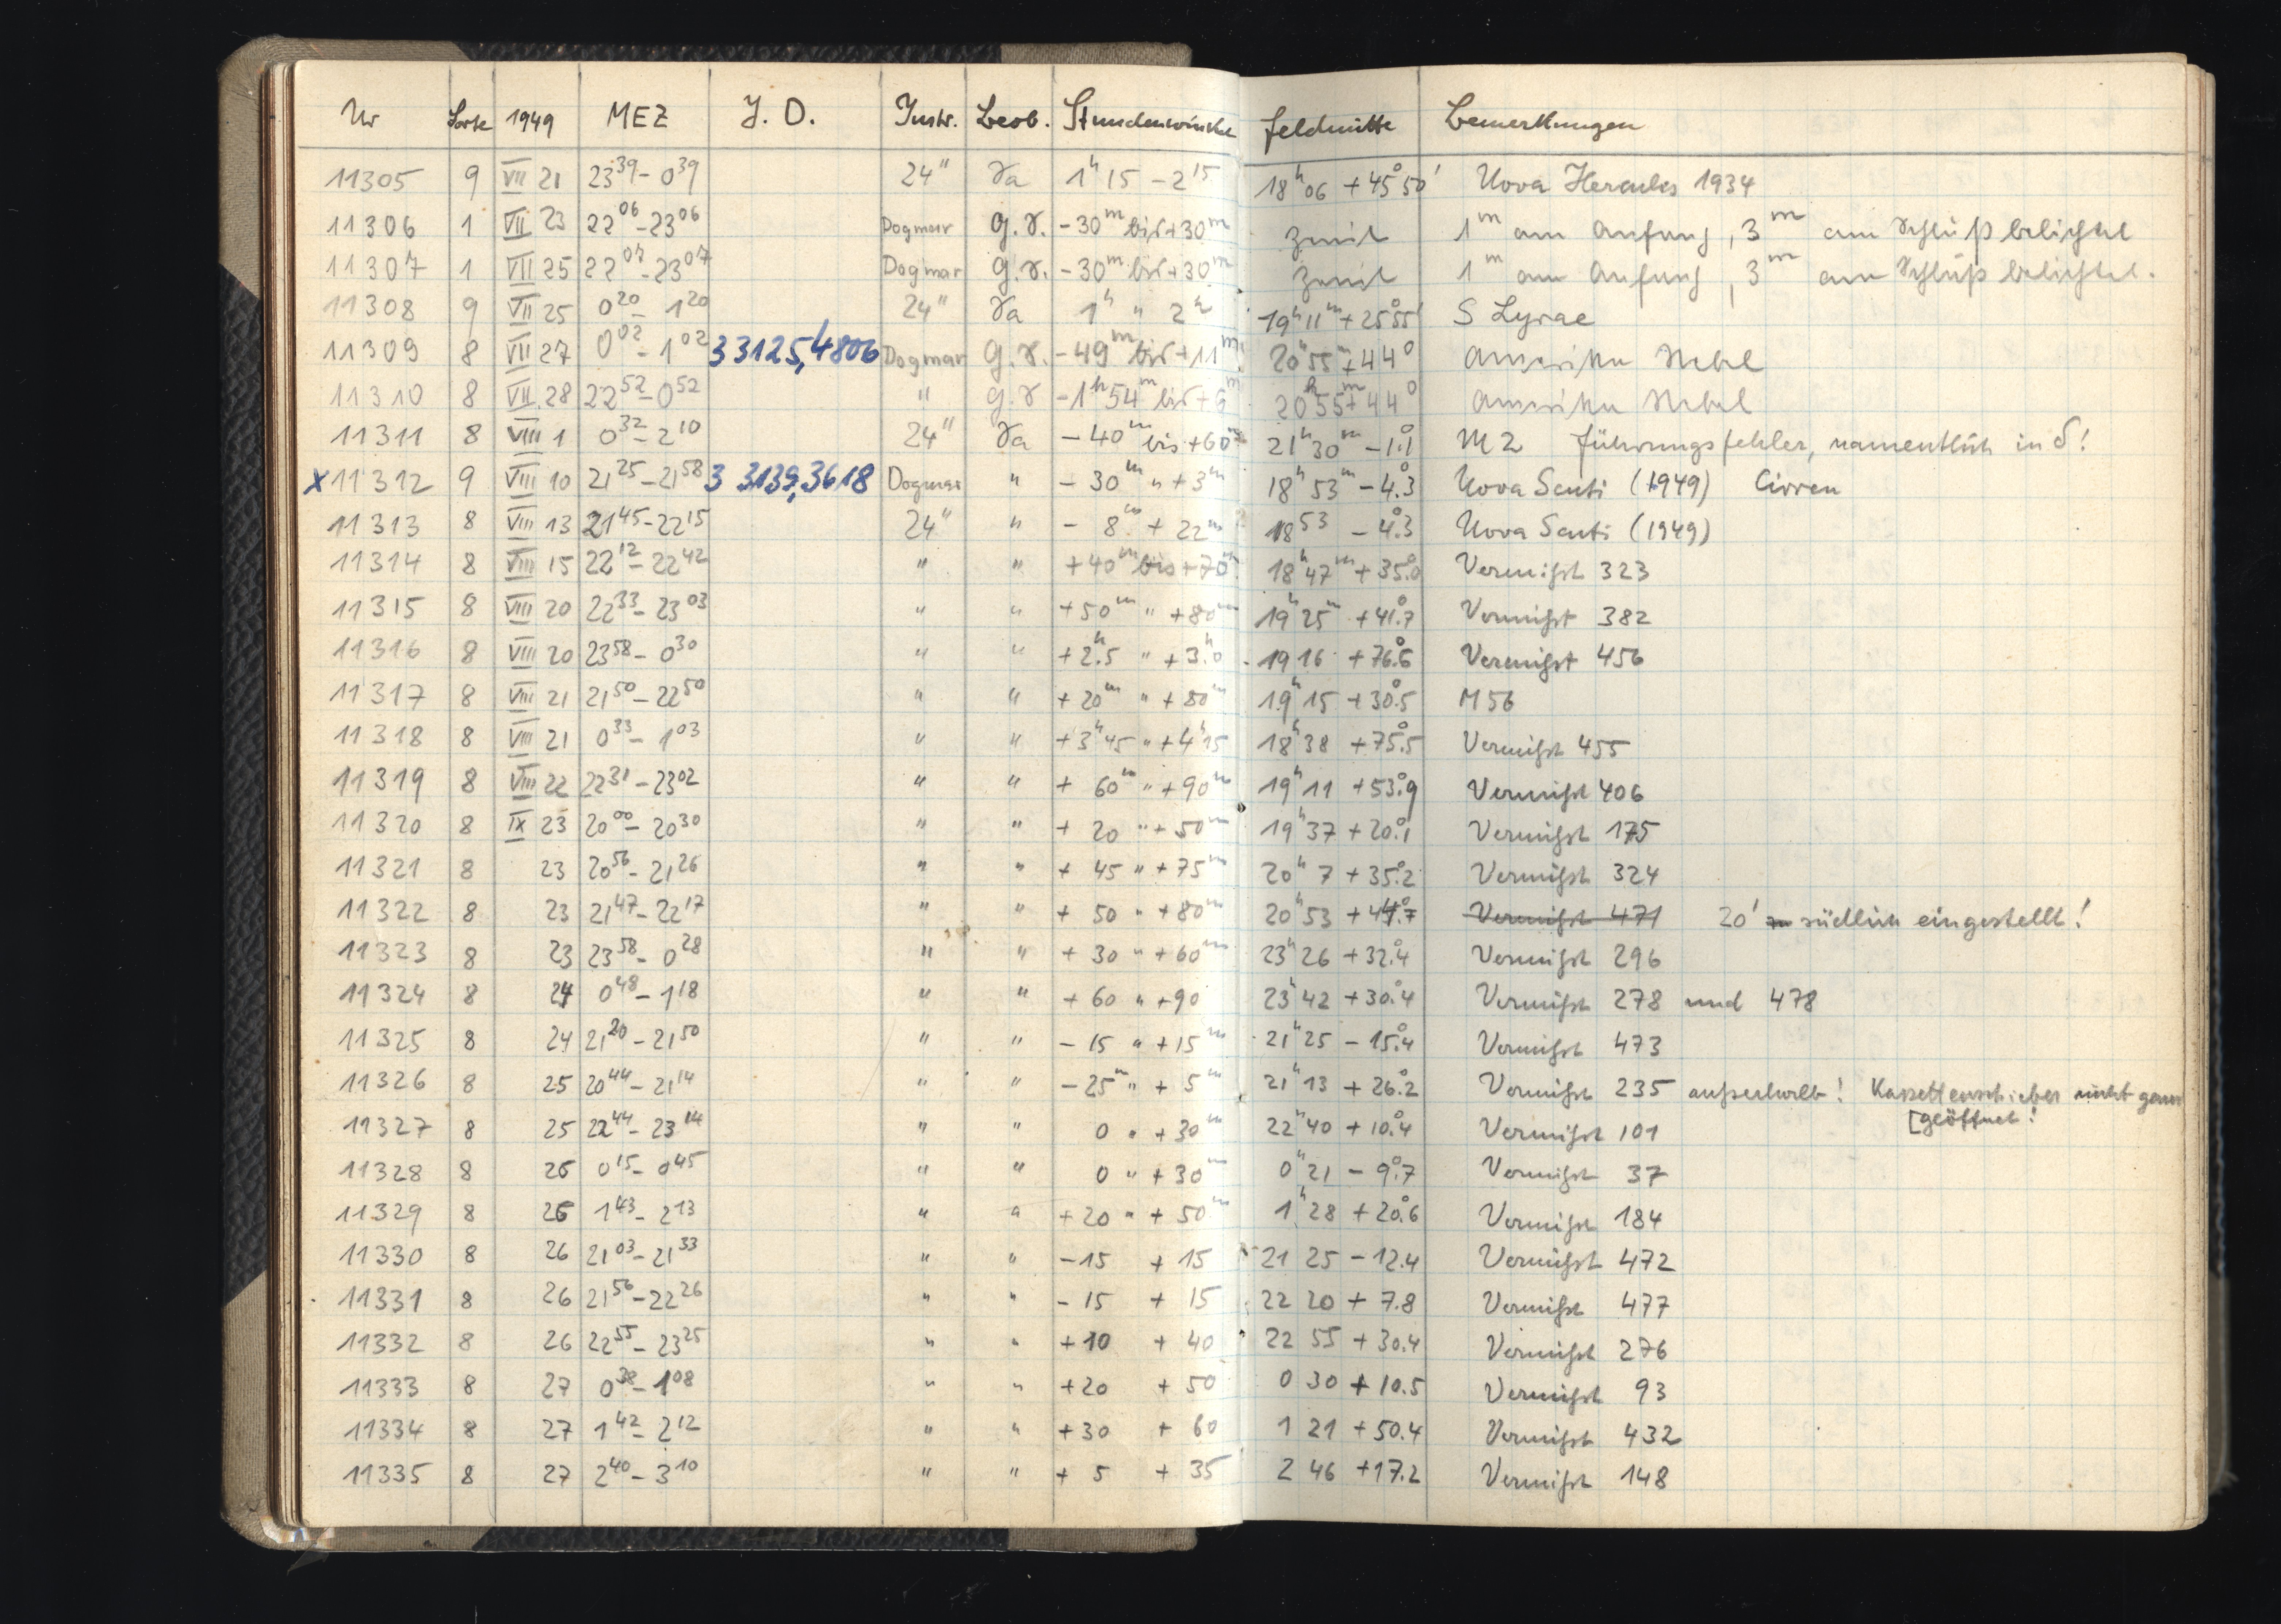 Nr Sorte 1949 MEZ J. D. Instr. Beob. Stundenwinkel Feldmitte Bemerkungen
11305 9 VII 21 23 39 – 0 39 24" Ta 1h 15 – 2 15 18h 06 + 45° 50' Nova Herculis 1934
11306 1 VII 23 22 06 – 23 06 Dogmar g. r. – 30m bis + 30m Zenit 1m am Anfang, 3m am Schluß belichtet
11307 1 VII 25 22 07 – 23 07 Dogmar g. r. – 30m bis + 30m Zenit 1m am Anfang, 3m am Schluß belichtet.
11308 9 VII 25 0 20 – 1 20 24" Ta 1h " 2h 19h 11m + 25° 55' S Lyrae
11309 8 VII 27 0 02 – 1 02 3 3125,4806 Dogmar g. r. – 49m bis + 11m 20h 55m + 44° Amerika Nebel
11310 8 VII 28 22 52 – 0 52 " g. r – 1h 54m bis + 6m 20h 55m + 44° Amerika Nebel
11311 8 VIII 1 0 32 – 2 10 24" Ta – 40m bis + 60m 21h 30m – 1°.1 M 2 Führungsfehler, namentlich in δ!
x 11312 9 VIII 10 21 25 – 21 58 3 3139,3618 Dogmar " – 30m " + 3m 18h 53m – 4°.3 Nova Scuti (1949) Cirren
11313 8 VIII 13 21 45 – 22 15 24" " – 8m + 22m 18 53 – 4°.3 Nova Scuti (1949)
11314 8 VIII 15 22 12 – 22 42 " " + 40m bis + 70m 18h 47m + 35°.0 Vermißt 323
11315 8 VIII 20 22 33 – 23 03 " " + 50m " + 80m 19h 25m + 41°.7 Vermißt 382
11316 8 VIII 20 23 58 – 0 30 " " + 2h.5 " + 3h.0 19 16 + 76°.6 Vermißt 456
11317 8 VIII 21 21 50 – 22 50 " " + 20m " + 80m 19h 15 + 30°.5 M 56
11318 8 VIII 21 0 33 – 1 03 " " + 3h 45 " + 4h 15 18h 38 + 75°.5 Vermißt 455
11319 8 VIII 22 22 31 – 23 02 " " + 60m " + 90m 19h 11 + 53°.9 Vermißt 406
11320 8 IX 23 20 00 – 20 30 " " + 20 " + 50m 19h 37 + 20°.1 Vermißt 175
11321 8 23 20 56 – 21 26 " " + 45 " + 75m 20h 7 + 35°.2 Vermißt 324
11322 8 23 21 47 – 22 17 " " + 50 " + 80m 20h 53 + 44°.7 Vermißt 471 20' südlich eingestellt!
11323 8 23 23 58 – 0 28 " " + 30 " + 60m 23h 26 + 32°.4 Vermißt 296
11324 8 24 0 48 – 1 18 " " + 60 " + 90 23h 42 + 30°.4 Vermißt 278 und 478
11325 8 24 21 20 – 21 50 " " – 15 " + 15m 21h 25 – 15°.4 Vermißt 473
11326 8 25 20 44 – 21 14 " " – 25m " + 5m 21h 13 + 26°.2 Vermißt 235 außerhalb! Kassettenschieber nicht ganz
[geöffnet!
11327 8 25 22 44 – 23 14 " " 0 " + 30m 22h 40 + 10°.4 Vermißt 101
11328 8 26 0 15 – 0 45 " " 0 " + 30m 0h 21 – 9°.7 Vermißt 37
11329 8 26 1 43 – 2 13 " " + 20 " + 50m 1h 28 + 20°.6 Vermißt 184
11330 8 26 21 03 – 21 33 " " – 15 + 15 21 25 – 12.4 Vermißt 472
11331 8 26 21 56 – 22 26 " " – 15 + 15 22 20 + 7.8 Vermißt 477
11332 8 26 22 55 – 23 25 " " + 10 + 40 22 55 + 30.4 Vermißt 276
11333 8 27 0 38 – 1 08 " " + 20 + 50 0 30 + 10.5 Vermißt 93
11334 8 27 1 42 – 2 12 " " + 30 + 60 1 21 + 50.4 Vermißt 432
11335 8 27 2 40 – 3 10 " " + 5 + 35 2 46 + 17.2 Vermißt 148